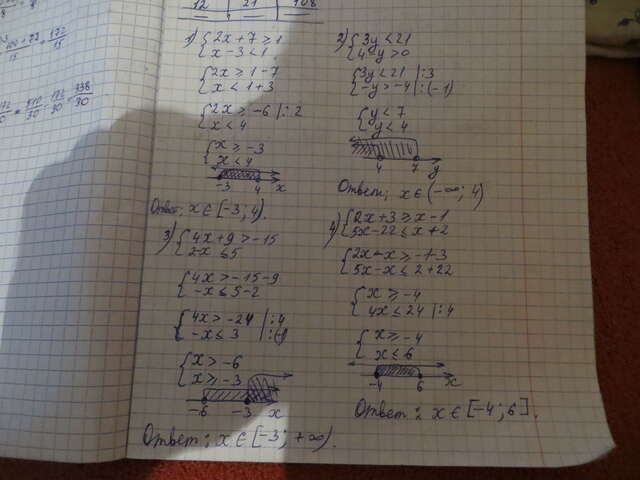 12 21 108
1) { 2x + 7 ≥ 1
x - 3 < 1
{ 2x ≥ 1 - 7
x < 1 + 3
{ 2x ≥ -6 |: 2
x < 4
{ x ≥ -3
x < 4
-3 4 x
Ответ: x ∈ [-3; 4).
2) { 3y < 21
4 - y > 0
{ 3y < 21 |: 3
-y > -4 |: (-1)
{ y < 7
y < 4
4 7 y
Ответ: x ∈ (-∞; 4)
3) { 4x + 9 > -15
2 - x ≤ 5
{ 4x > -15 - 9
-x ≤ 5 - 2
{ 4x > -24 |: 4
-x ≤ 3 |: (-1)
{ x > -6
x ≥ -3
-6 -3 x
Ответ: x ∈ [-3; +∞).
4) { 2x + 3 ≥ x - 1
5x - 22 ≤ x + 2
{ 2x - x ≥ -1 - 3
5x - x ≤ 2 + 22
{ x ≥ -4
4x ≤ 24 |: 4
{ x ≥ -4
x ≤ 6
-4 6 x
Ответ: x ∈ [-4; 6].